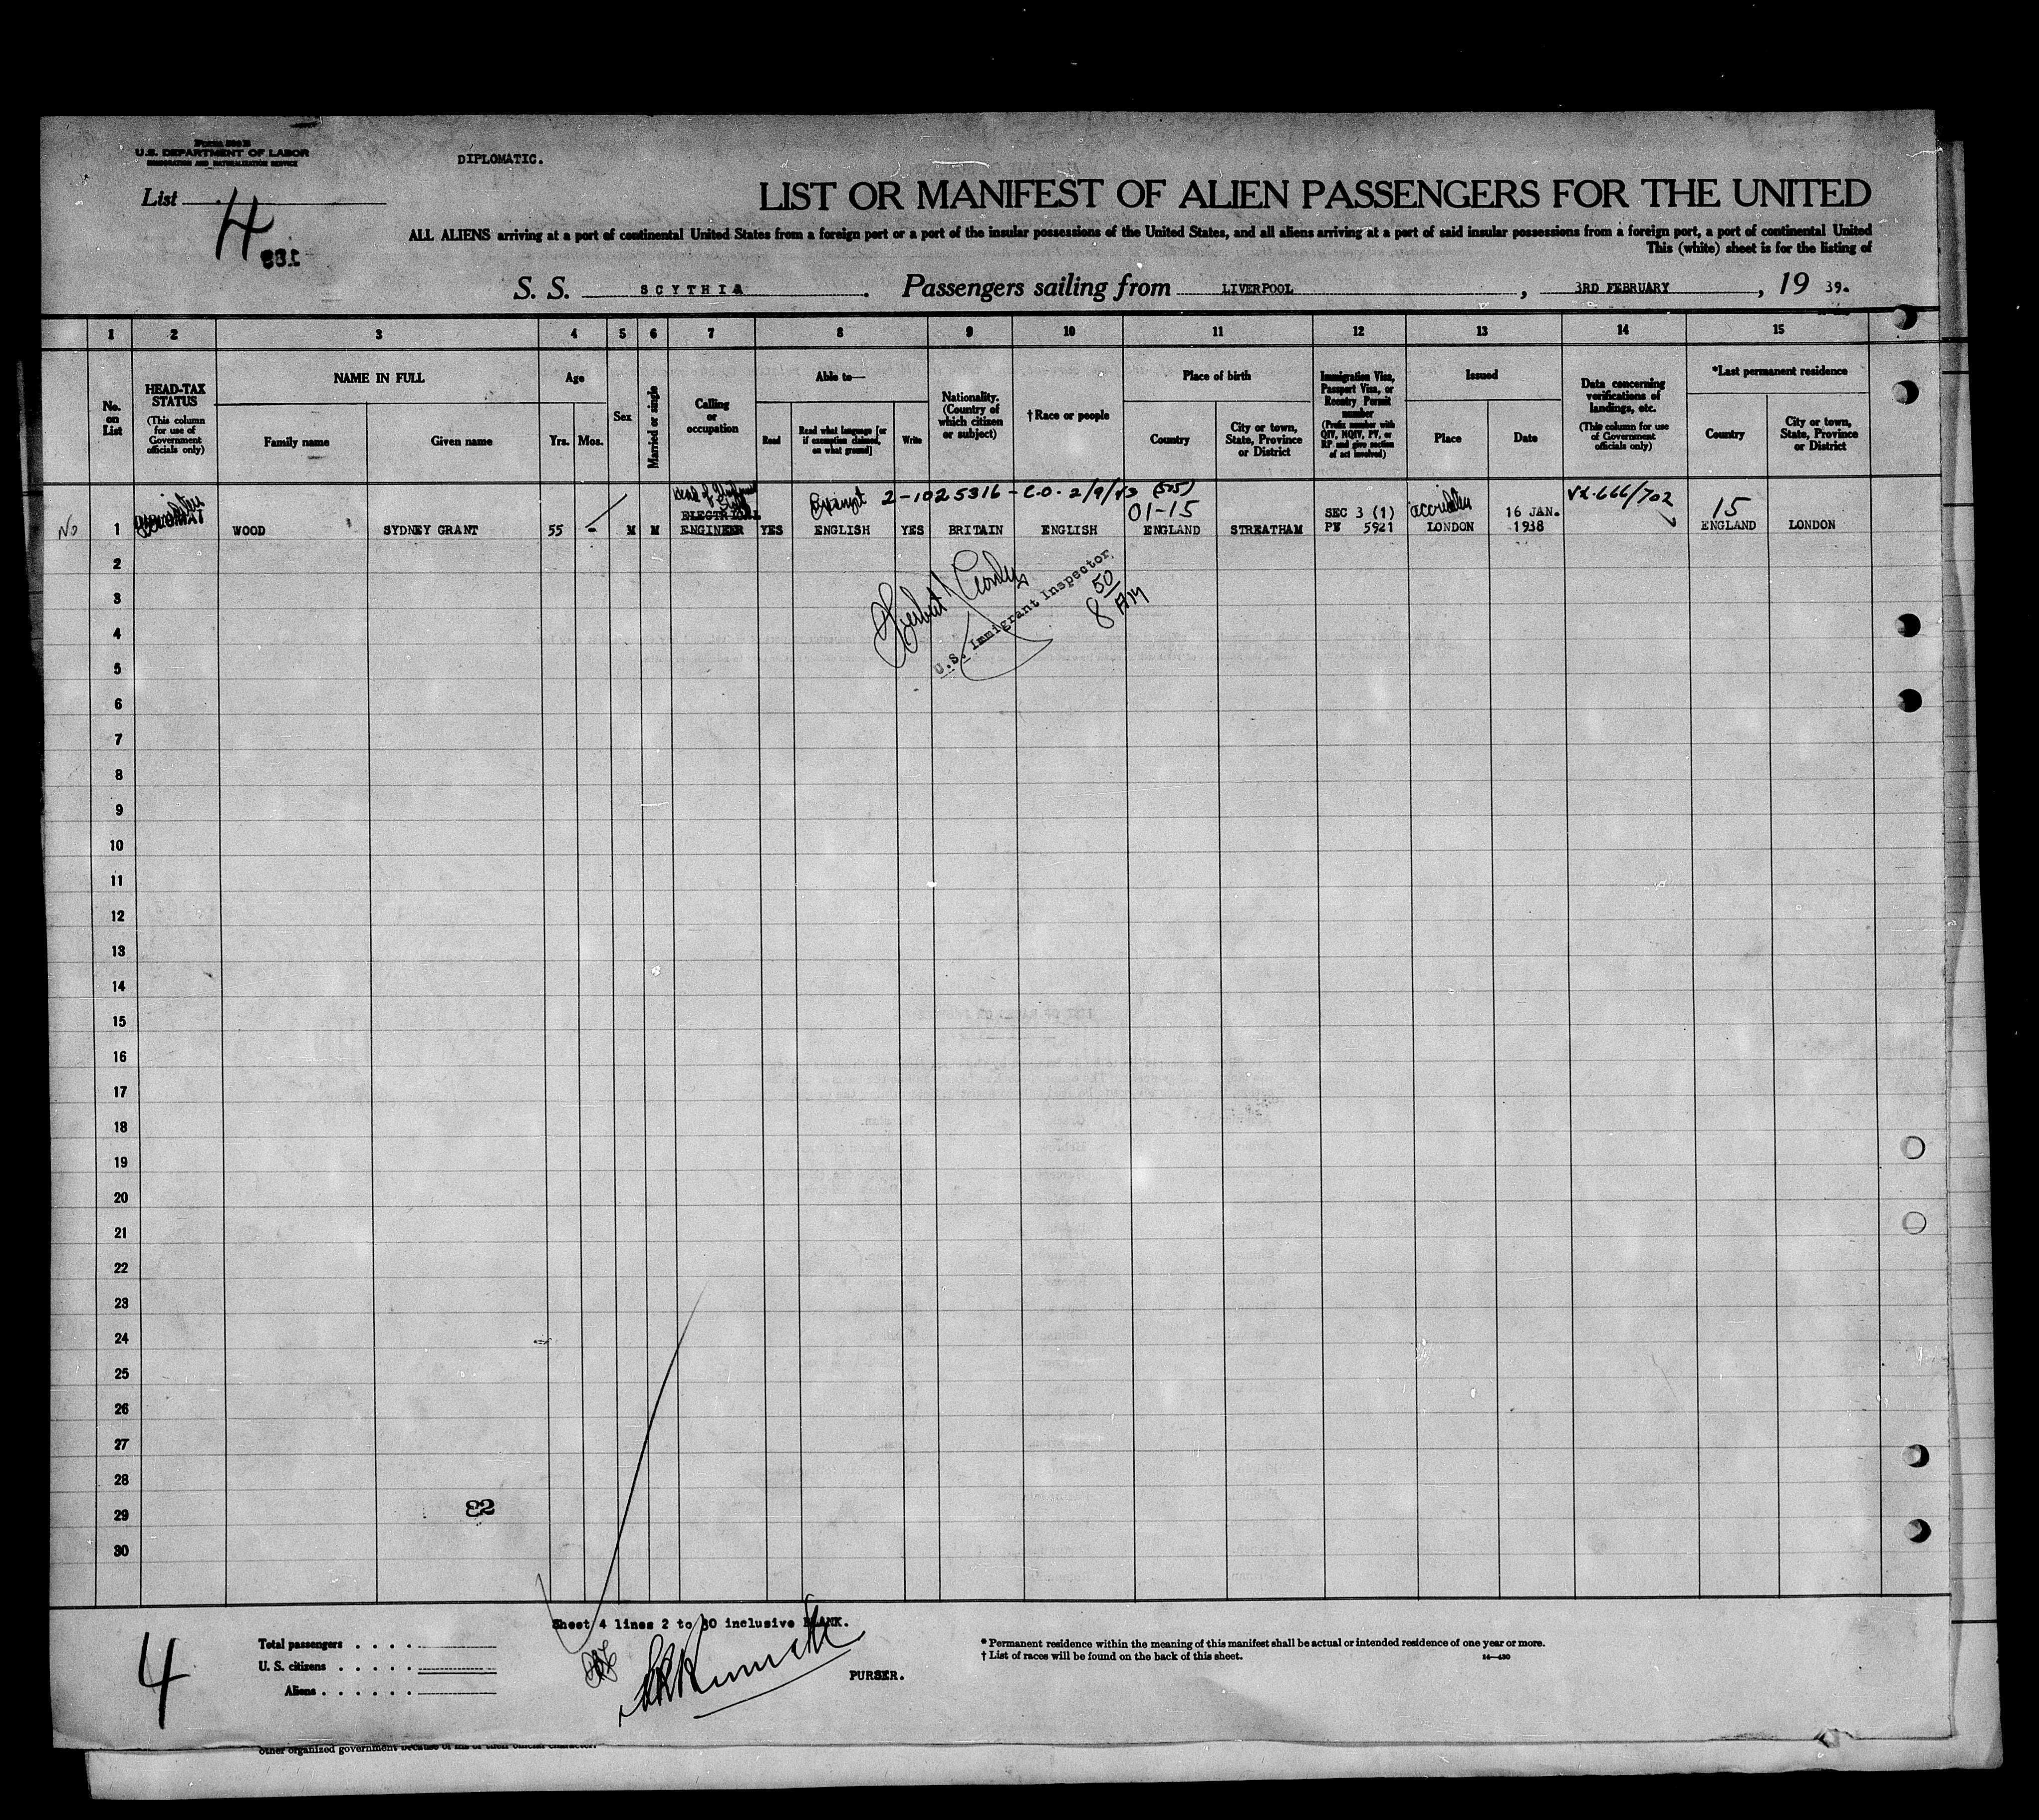 Form 500 B
U.S. DEPARTMENT OF LABOR
IMMIGRATION AND NATURALIZATION SERVICE
DIPLOMATIC.
List 4
LIST OR MANIFEST OF ALIEN PASSENGERS FOR THE UNITED
ALL ALIENS arriving at a port of continental United States from a foreign port or a port of the insular possessions of the United States, and all aliens arriving at a port of said insular possessions from a foreign port, a port of continental United
This (white) sheet is for the listing of
S. S. SCYTHIA. Passengers sailing from LIVERPOOL, 3RD FEBRUARY, 19 39.
1 2 3 4 5 6 7 8 9 10 11 12 13 14 15
No. on List
HEAD-TAX STATUS
(This column for use of Government officials only)
NAME IN FULL
Family name
Given name
Age
Yrs.
Mos.
Sex
Married or single
Calling or occupation
Able to—
Read
Read what language [or if exemption claimed, on what ground]
Write
Nationality. (Country of which citizen or subject)
†Race or people
Place of birth
Country
City or town, State, Province or District
Immigration Visa, Passport Visa, or Reentry Permit number
(Prefix number with QIV, NQIV, PV, or RP and give section of act involved)
Issued
Place
Date
Data concerning verifications of landings, etc.
(This column for use of Government officials only)
*Last permanent residence
Country
City or town, State, Province or District
Exempt 2-1025316-C.O. 2/9/43 (575)
01-15
VL.666/702
15
No 1 WOOD SYDNEY GRANT 55 - M M ELECTRICAL ENGINEER YES ENGLISH YES BRITAIN ENGLISH ENGLAND STREATHAM SEC 3 (1) PV 5921 LONDON 16 JAN. 1938 ENGLAND LONDON
U.S. Immigrant Inspector.
8 50 AM
2
3
4
5
6
7
8
9
10
11
12
13
14
15
16
17
18
19
20
21
22
23
24
25
26
27
28
29
30
Sheet 4 lines 2 to 30 inclusive BLANK.
4
Total passengers . . . .
U. S. citizens . . . . .
Aliens . . . . . .
PURSER.
* Permanent residence within the meaning of this manifest shall be actual or intended residence of one year or more.
† List of races will be found on the back of this sheet.
14—430
other organized government because of his or their official character.